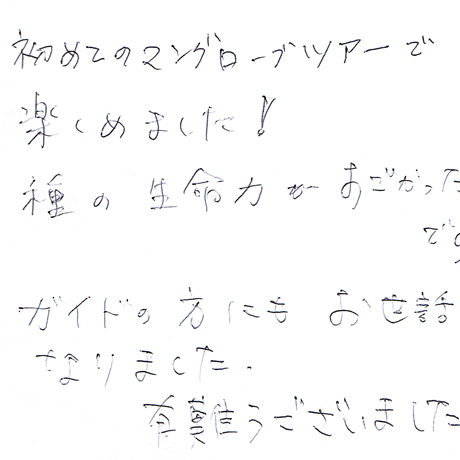 初めてのマングローブツアーで
楽しめました!
種の生命力がすごかった
です
ガイドの方にもお世話
なりました.
有難うございました